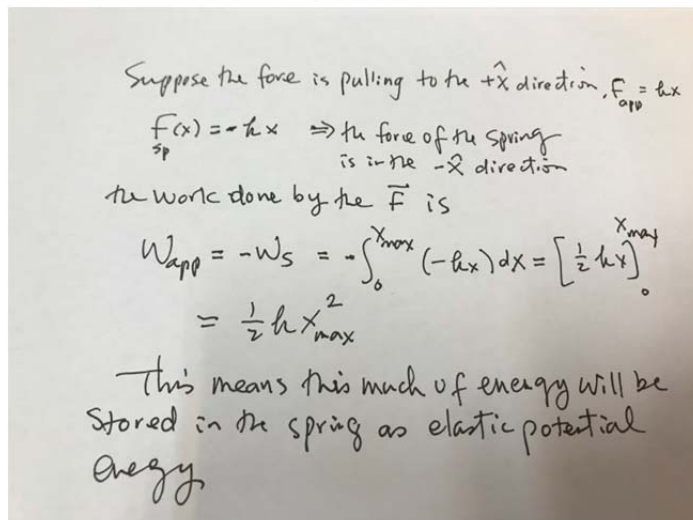 Suppose the force is pulling to the +x̂ direction, F_app = kx
F_sp(x) = -kx ⇒ the force of the spring
is in the -x̂ direction
the work done by the F⃗ is
W_app = -W_s = -∫_0^{x_max} (-kx) dx = [½ kx]_0^{x_max}
= ½ k x_max^2
This means this much of energy will be
stored in the spring as elastic potential
energy.